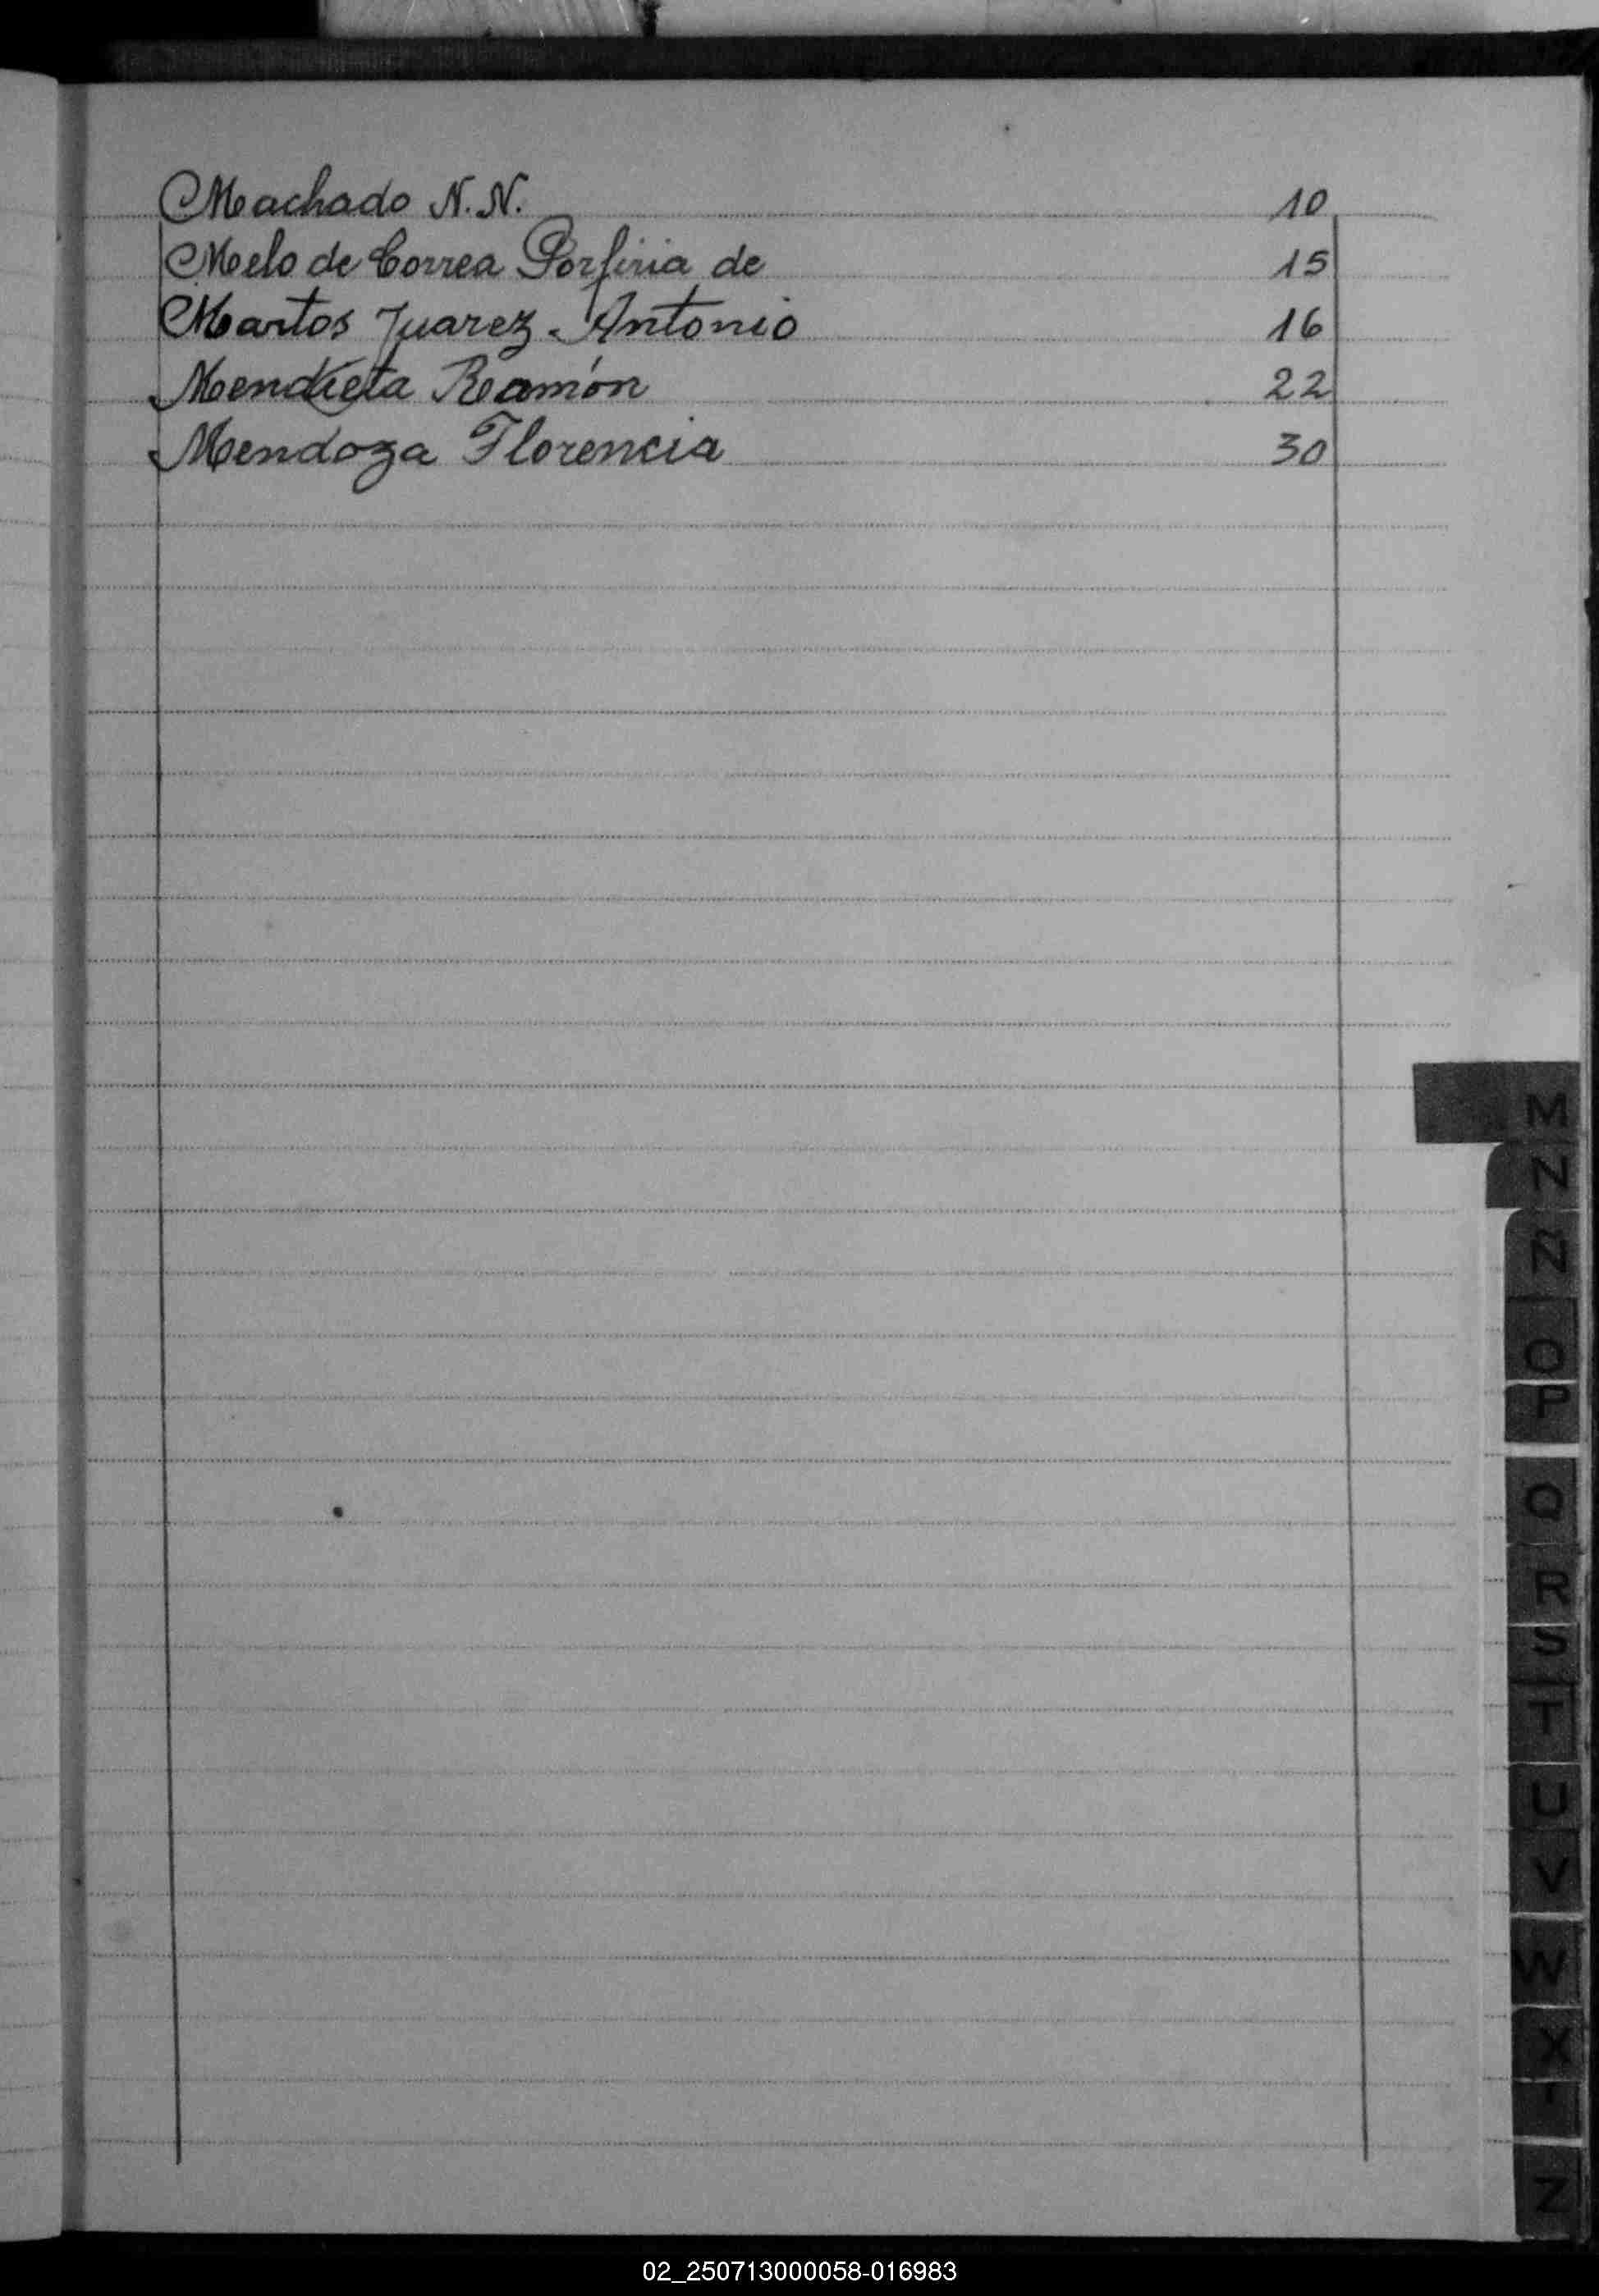 Machado N. N. 10
Melo de Correa Porfiria de 15
Martos Juarez Antonio 16
Mendieta Ramón 22
Mendoza Florencia 30
M
N
Ñ
O
P
Q
R
S
T
U
V
W
X
Z
02_250713000058-016983